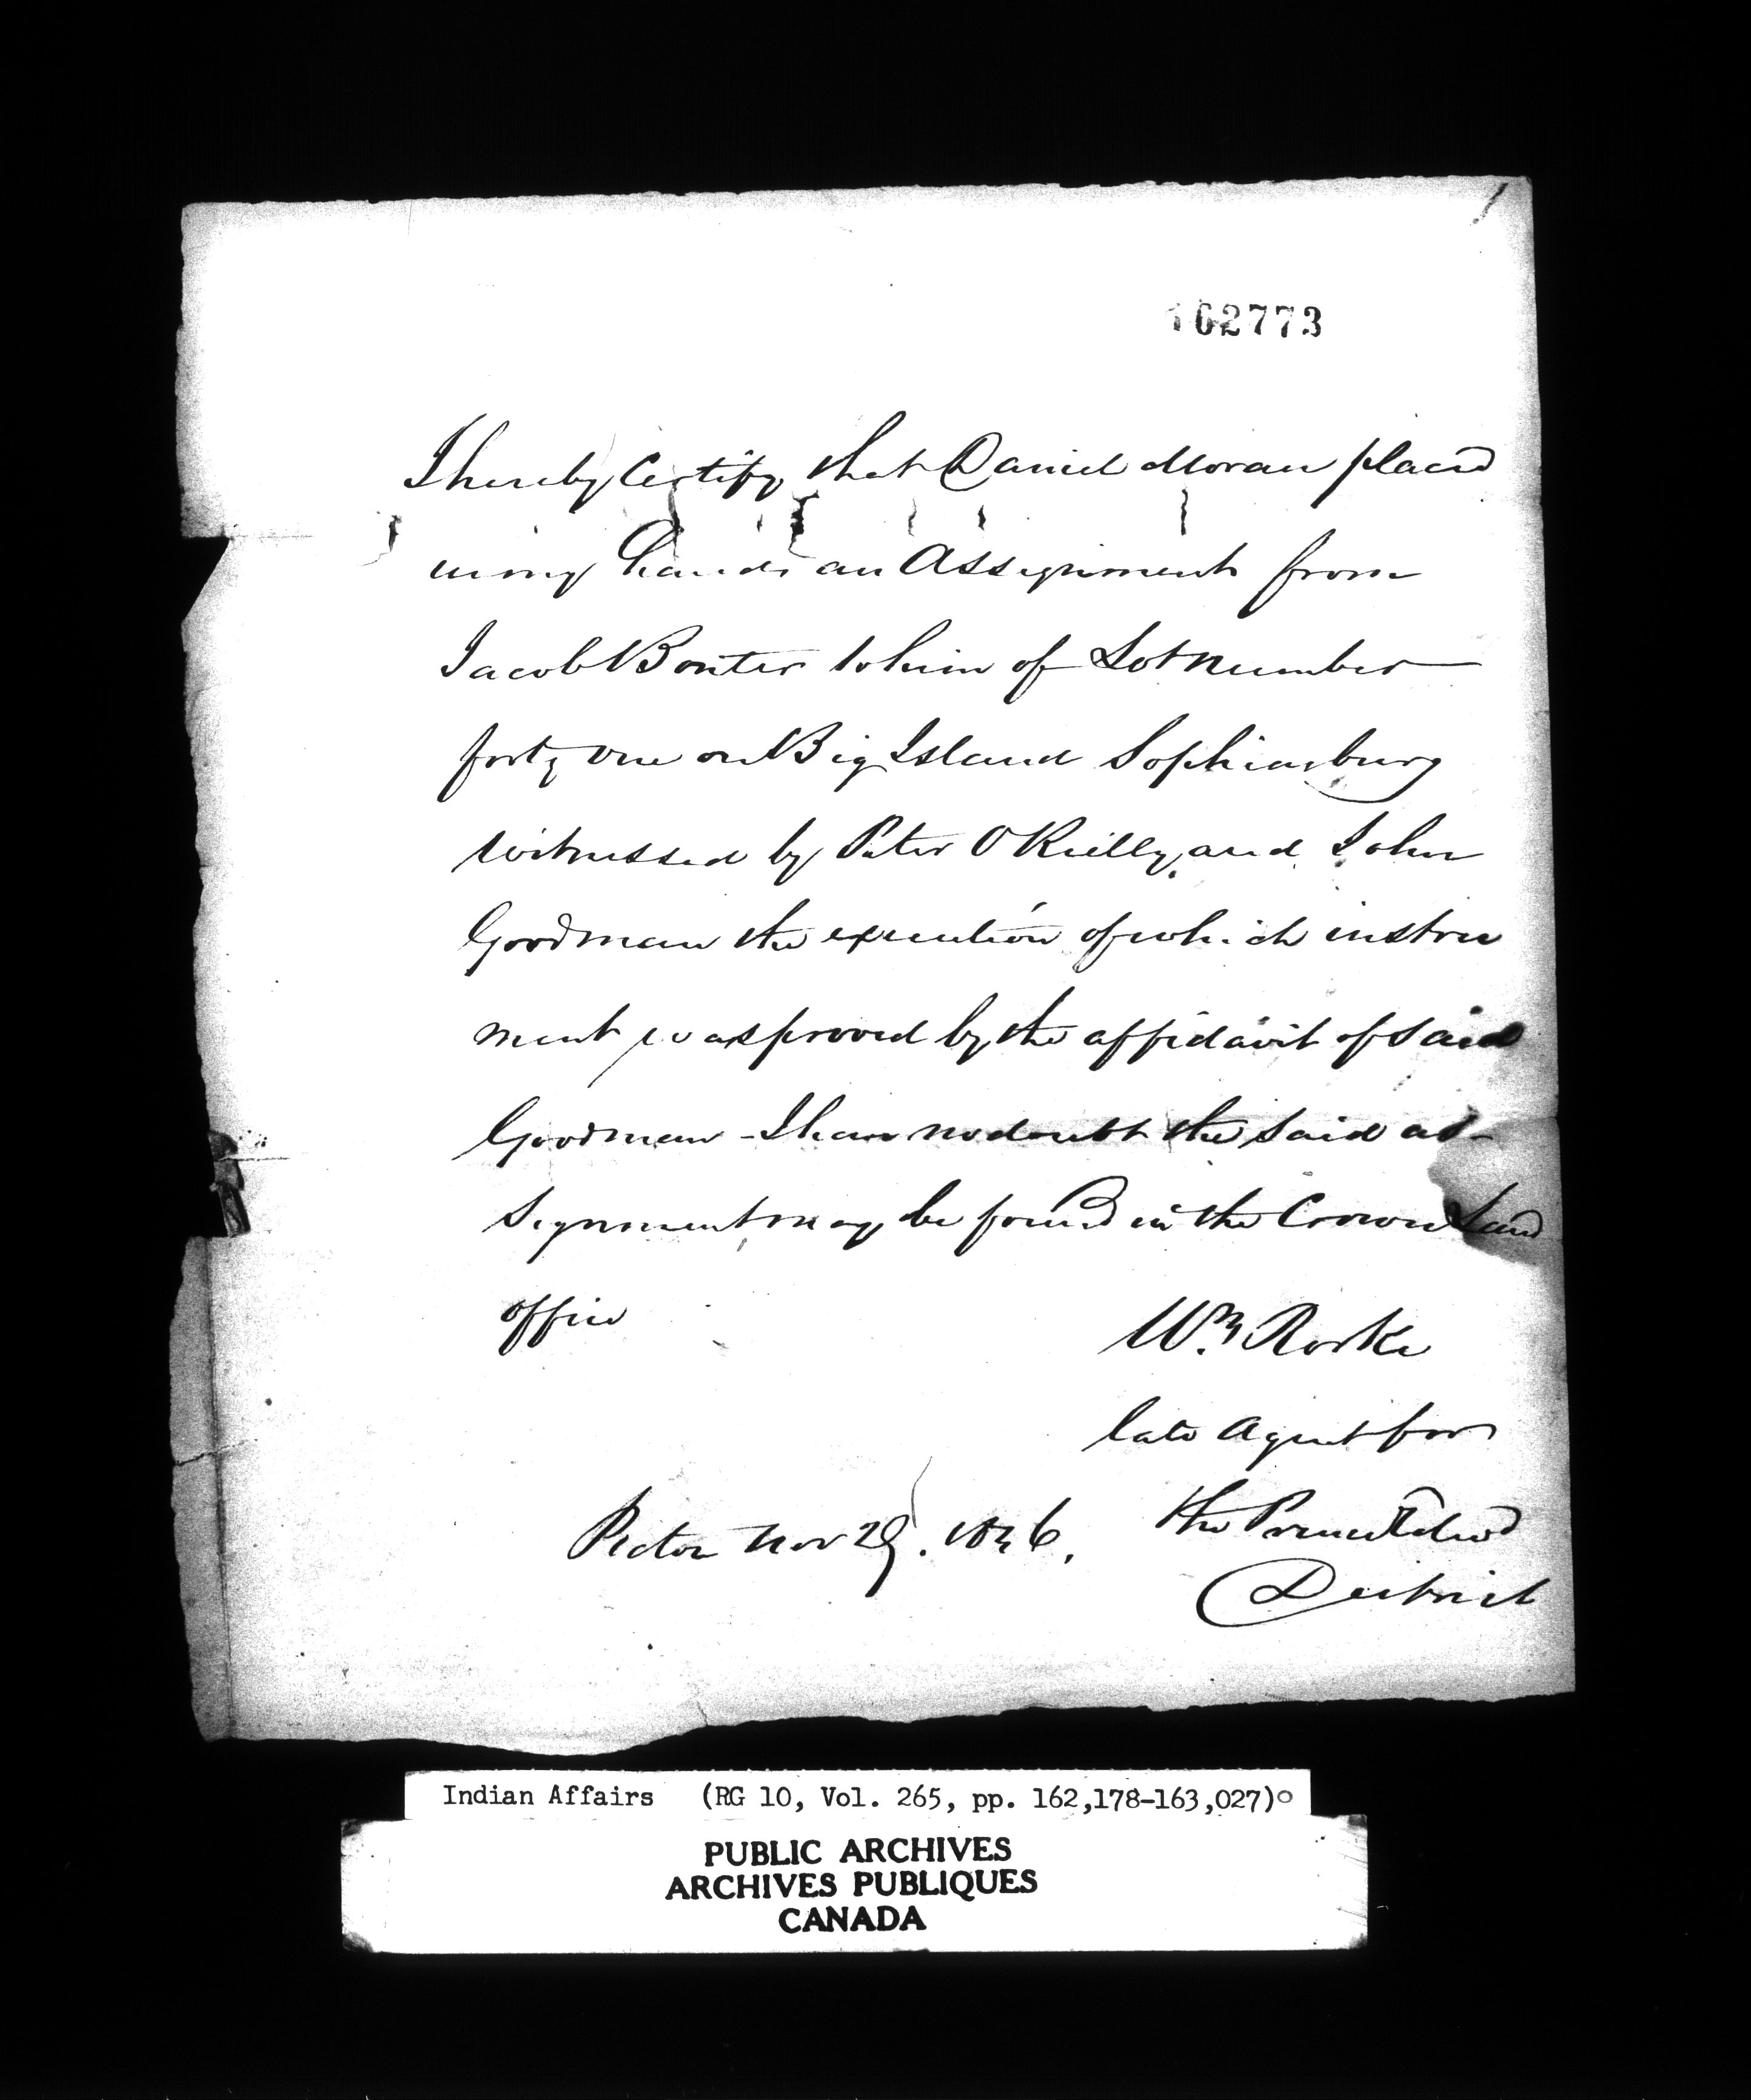 162773
I hereby Certify that Daniel Moran placed
in my hands an Assignment from
Jacob Bonter to him of Lot number
forty one on Big Island Sophiasburg
witnessed by Peter O Rielly and John
Goodman the execution of which instru
ment was proved by the affidavit of said
Goodman - I have no doubt the said as-
signment may be found in the Crown Land
office
Wm Rorke
late Agent for
the Prince Edwd
District
Picton Nov 29. 1846.
Indian Affairs (RG 10, Vol. 265, pp. 162,178-163,027)
PUBLIC ARCHIVES
ARCHIVES PUBLIQUES
CANADA